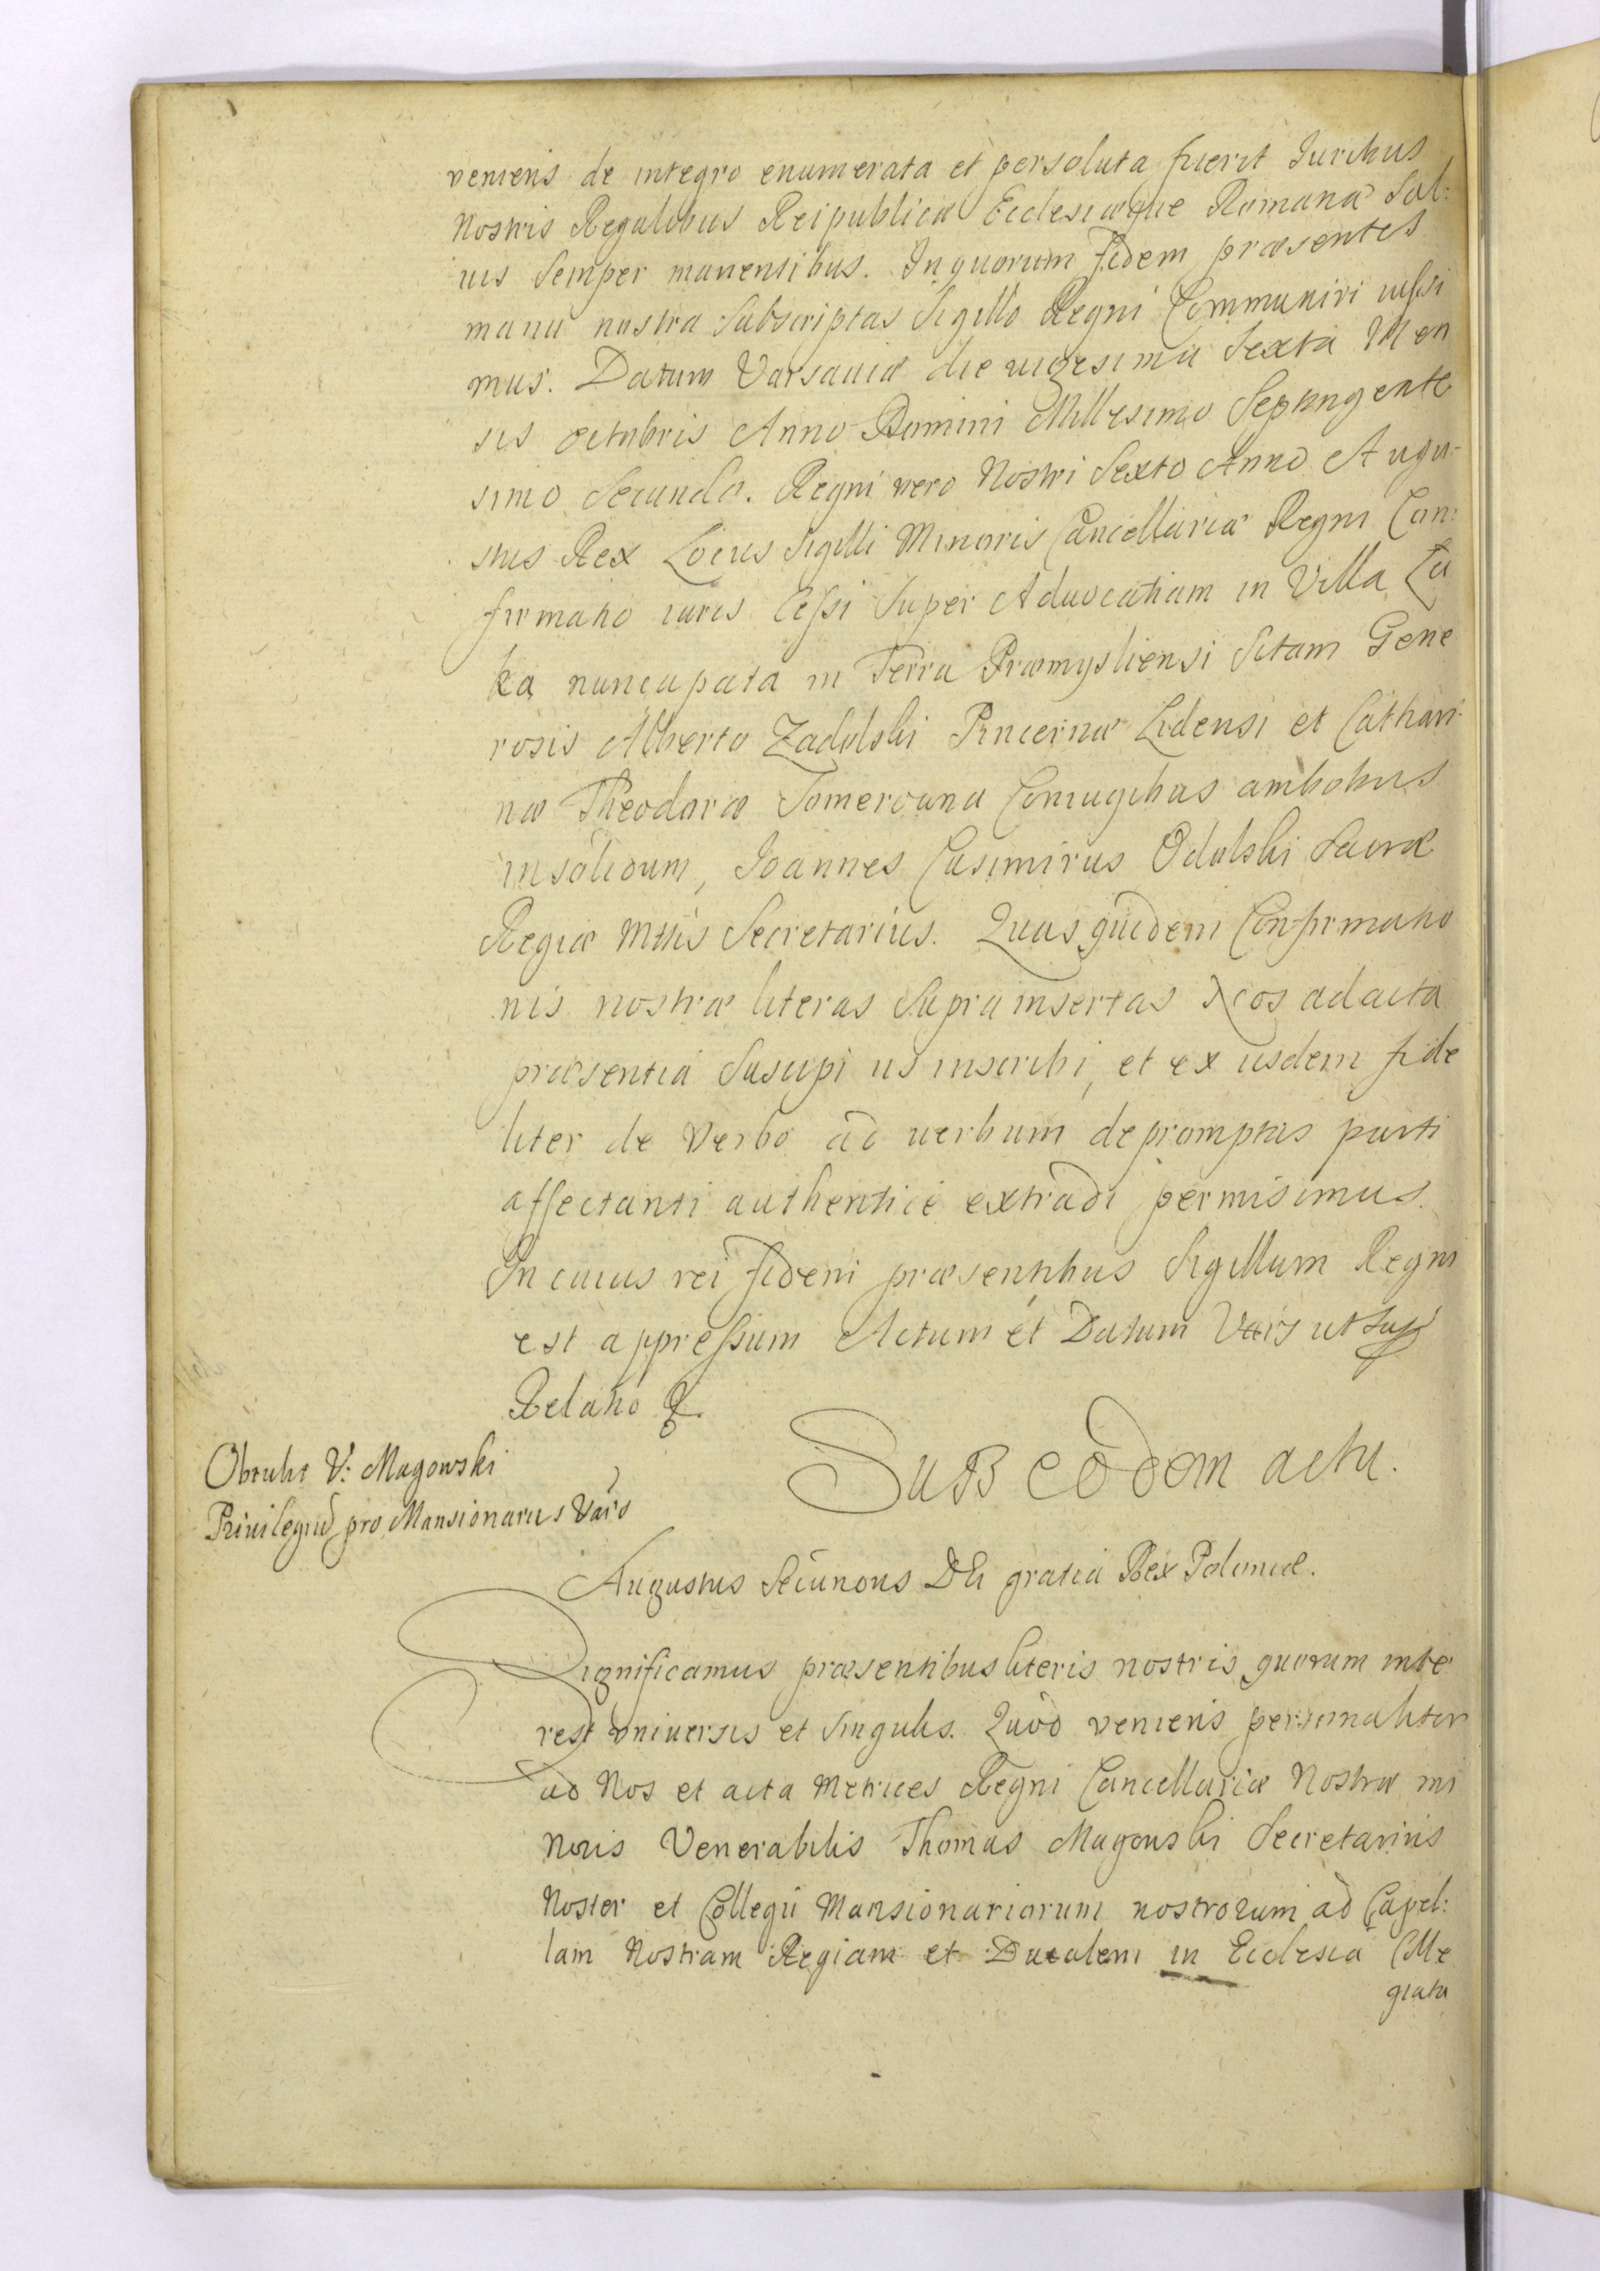 veniens de integro enumerata et persoluta fuerit Juribus
Nostris Regalibus Reipublicæ Ecclesiæque Romanæ Sal:
uis Semper manentibus. In quorum fidem præsentes
manu nostra Subscriptas Sigillo Regni Communiri iussi
mus. Datum Varsauiæ die uigesima Sexta Men
sis octobris Anno Domini Millesimo Septingente
simo Secundo. Regni vero Nostri Sexto Anno Augu-
stus Rex Locus Sigilli Minoris Cancellariæ Regni Con:
firmatio iuris Cessi Super Aduocatiam in Villa Łu
ka nuncupata in Terra Præmysliensi Sitam Gene
rosis Alberto Zadolski Pincernæ Lidensi et Cathari
næ Theodoræ Komerowna Coniugibus ambobus
in solidum, Joannes Casimirus Odolski Sacræ
Regiæ Mttis Secretarius. Quas quidem Confirmatio
nis nostræ literas Supra insertas Nos ad acta
præsentia Suscipi iis inscribi, et ex iisdem fide
liter de Verbo ad uerbum depromptas parti
affectanti authenticè extradi permisimus.
In cuius rei fidem præsentibus Sigillum Regni
est appressum Actum et Datum Vars ut Sup
Relatio
Obtulit V: Magowski
Priuilegiũ pro Mansionariis Vars
Sub eodem actu.
Augustus Secundus DEi gratia Rex Poloniæ.
Significamus præsentibus literis nostris quorum inte
rest vniuersis et Singulis. Quòd veniens personaliter
ad Nos et acta Metrices Regni Cancellariæ Nostræ mi
noris Venerabilis Thomas Magowski Secretarius
Noster et Collegii Mansionariorum nostrorum ad Capel:
lam Nostram Regiam et Ducalem in Ecclesia Colle
giata